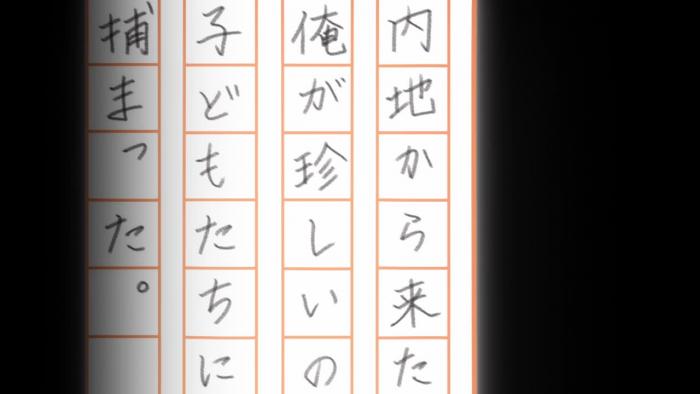 内地から来た
俺が珍しいの
子どもたちに
捕まった。